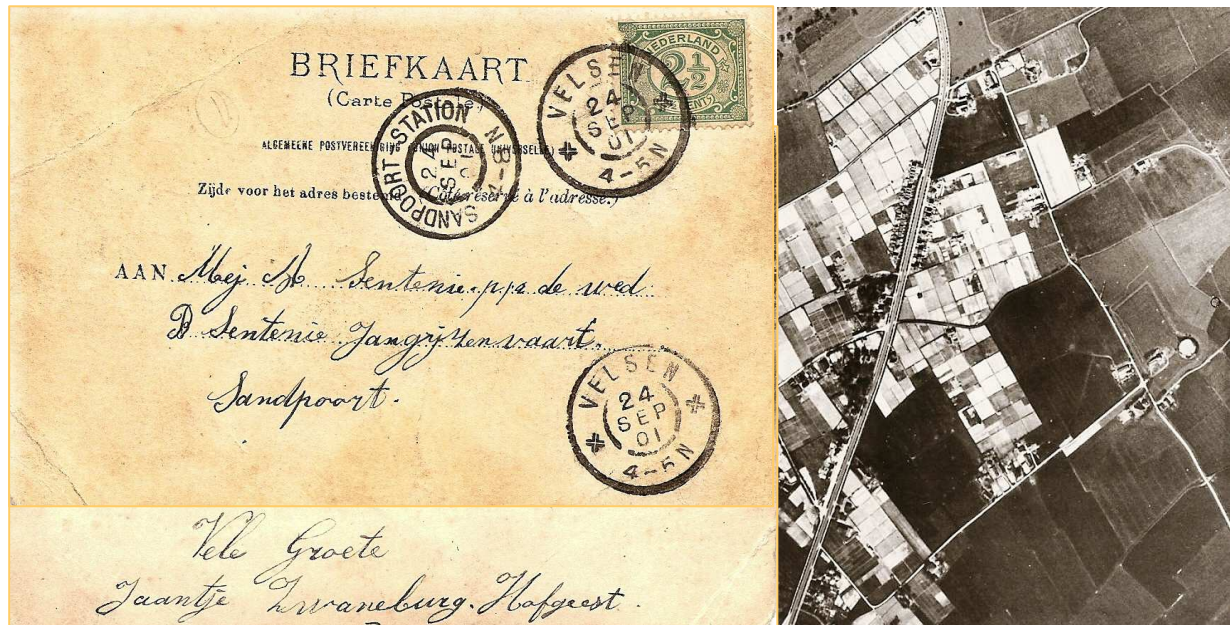 BRIEFKAART
(Carte Postale)
ALGEMEENE POSTVEREENIGING (UNION POSTALE UNIVERSELLE)
Zijde voor het adres bestemd (Côté réservé à l'adresse.)
NEDERLAND
2½
CENT
VELSEN
24
SEP
01
4-5N
SANDPOORT-STATION
24
SEP
01
N 8-
AAN Mej A Sentenie p/a de wed
B Sentenie Jangijzenvaart.
Sandpoort.
VELSEN
24
SEP
01
4-5N
Vele Groete
Jaantje Zwaneburg. Hofgeest.